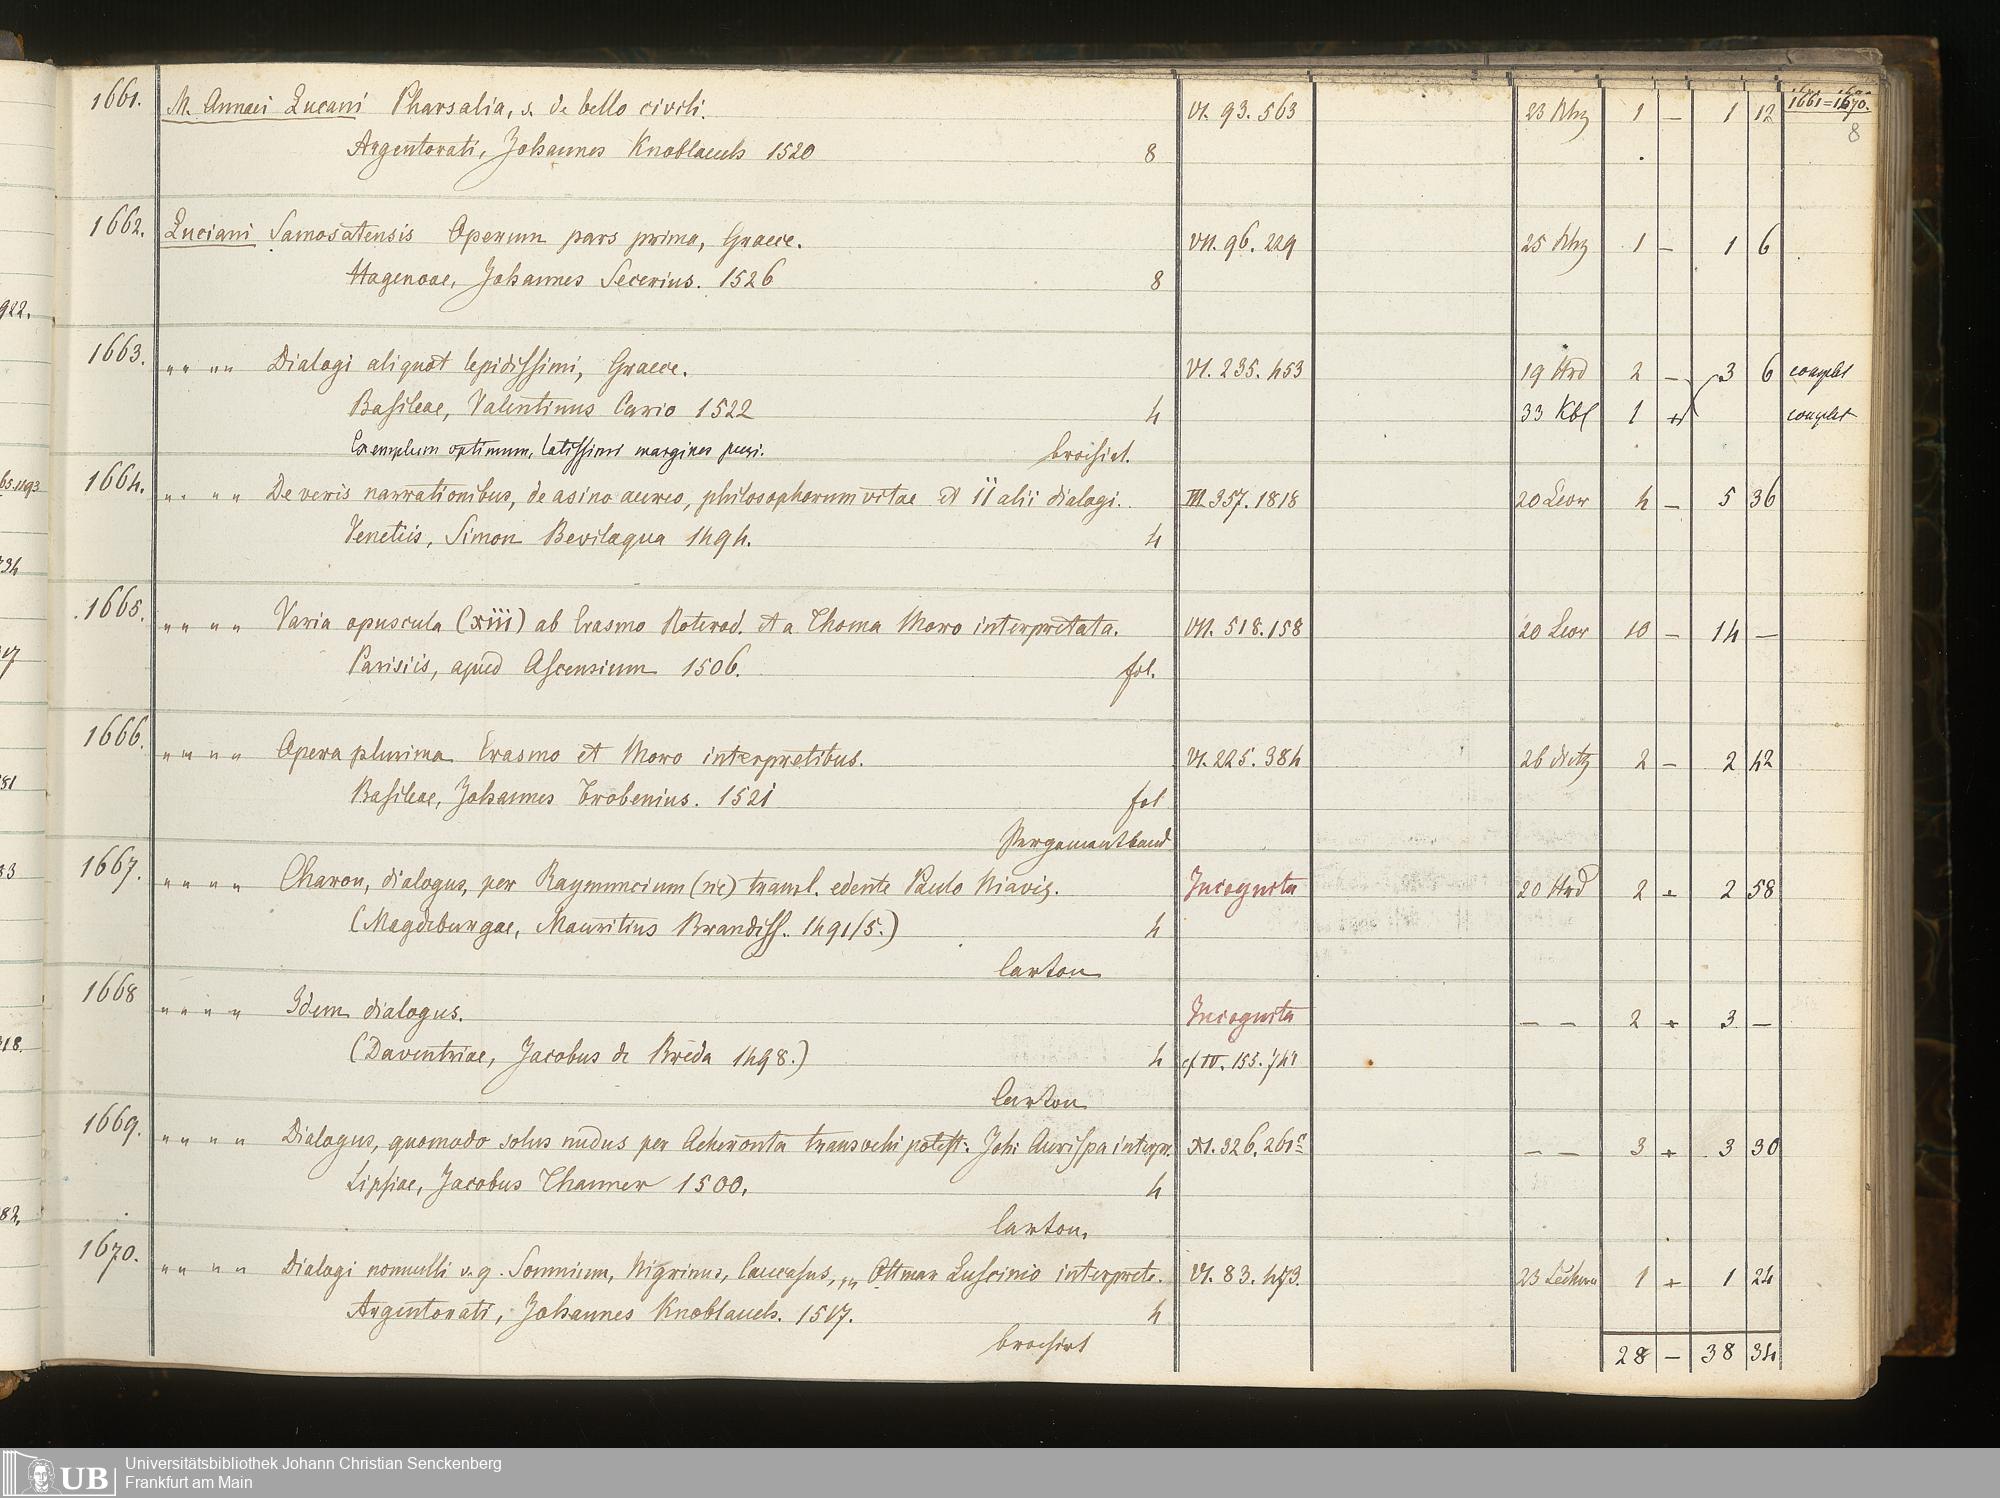 1661=1670.
8
1661. M. Annaei Lucani Pharsalia, s. de bello civili. VI. 93. 563 23 Rhz 1 — 1 12
Argentorati, Johannes Knoblauch 1520 8
1662. Luciani Samosatensis Operum pars prima, Graece. VII. 96. 229 25 Rhz 1 — 1 6
Hagenoae, Johannes Secerius. 1526 8
922.
1663. " " " " Dialogi aliquot lepidissimi, Graece. VI. 235. 453 19 Hrd 2 — 3 6 complet
Basileae, Valentinus Curio 1522 4 33 Kbl 1 + complet
Exemplum optimum, latissimi margines puri. brochirt.
1664. " " " " De veris narrationibus, de asino aureo, philosophorum vitae et ii alii dialogi. III. 357. 1818 20 Leor 4 — 5 36
Venetiis, Simon Bevilaqua 1494. 4
1665. " " " " Varia opuscula (xiii) ab Erasmo Roterod. et a Thoma Moro interpretata. VII. 518. 158 20 Leor 10 — 14 —
Parisiis, apud Ascensium 1506. fol.
1666. " " " " Opera plurima Erasmo et Moro interpretibus. VI. 225. 384 2 — 2 42
Basileae, Johannes Frobenius. 1521 fol
Pergamentband
1667. " " " " Charon, dialogus, per Raymuncium (sic) transl. edente Paulo Niavis. Incognita 20 Hrd 2 + 2 58
(Magdeburgae, Mauritius Brandiss. 1491/5.) 4
Carton
1668 " " " " Idem dialogus. Incognita — — 2 + 3 —
(Daventriae, Jacobus de Breda 1498.) 4 cf IV. 155. 741
Carton
1669. " " " " Dialogus, quomodo solus nudus per Acheronta transvehi potest. Joh: Aurispa interpr. XI. 326. 261c — — 3 + 3 30
Lipsiae, Jacobus Thanner 1500. 4
Carton.
1670. " " " " Dialogi nonnulli v. g. Somnium, Nigrinus, Caucasus, Ottmar Luscinio interprete. VI. 83. 473. 23 1 + 1 24
Argentorati, Johannes Knoblauch. 1517. 4
brochirt
28 — 38 34
UB Universitätsbibliothek Johann Christian Senckenberg
Frankfurt am Main